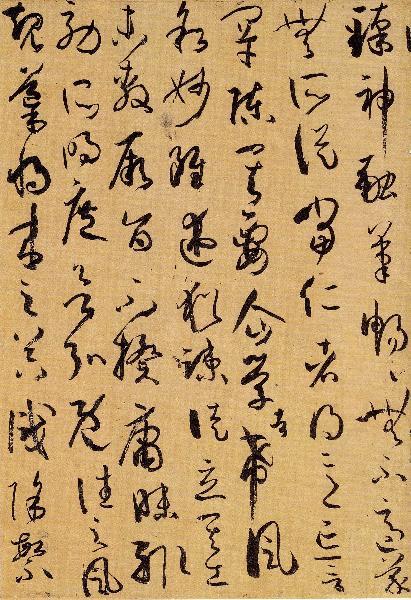 臻神融筆暢〻無不適蒙
無所從當仁者得意忘言
罕陳其要企學者希風
敘妙雖述猶疎徒立其工
未敷厥旨不揆庸昧輒
効所明庶欲弘既往之風
規導將來之器識除繁